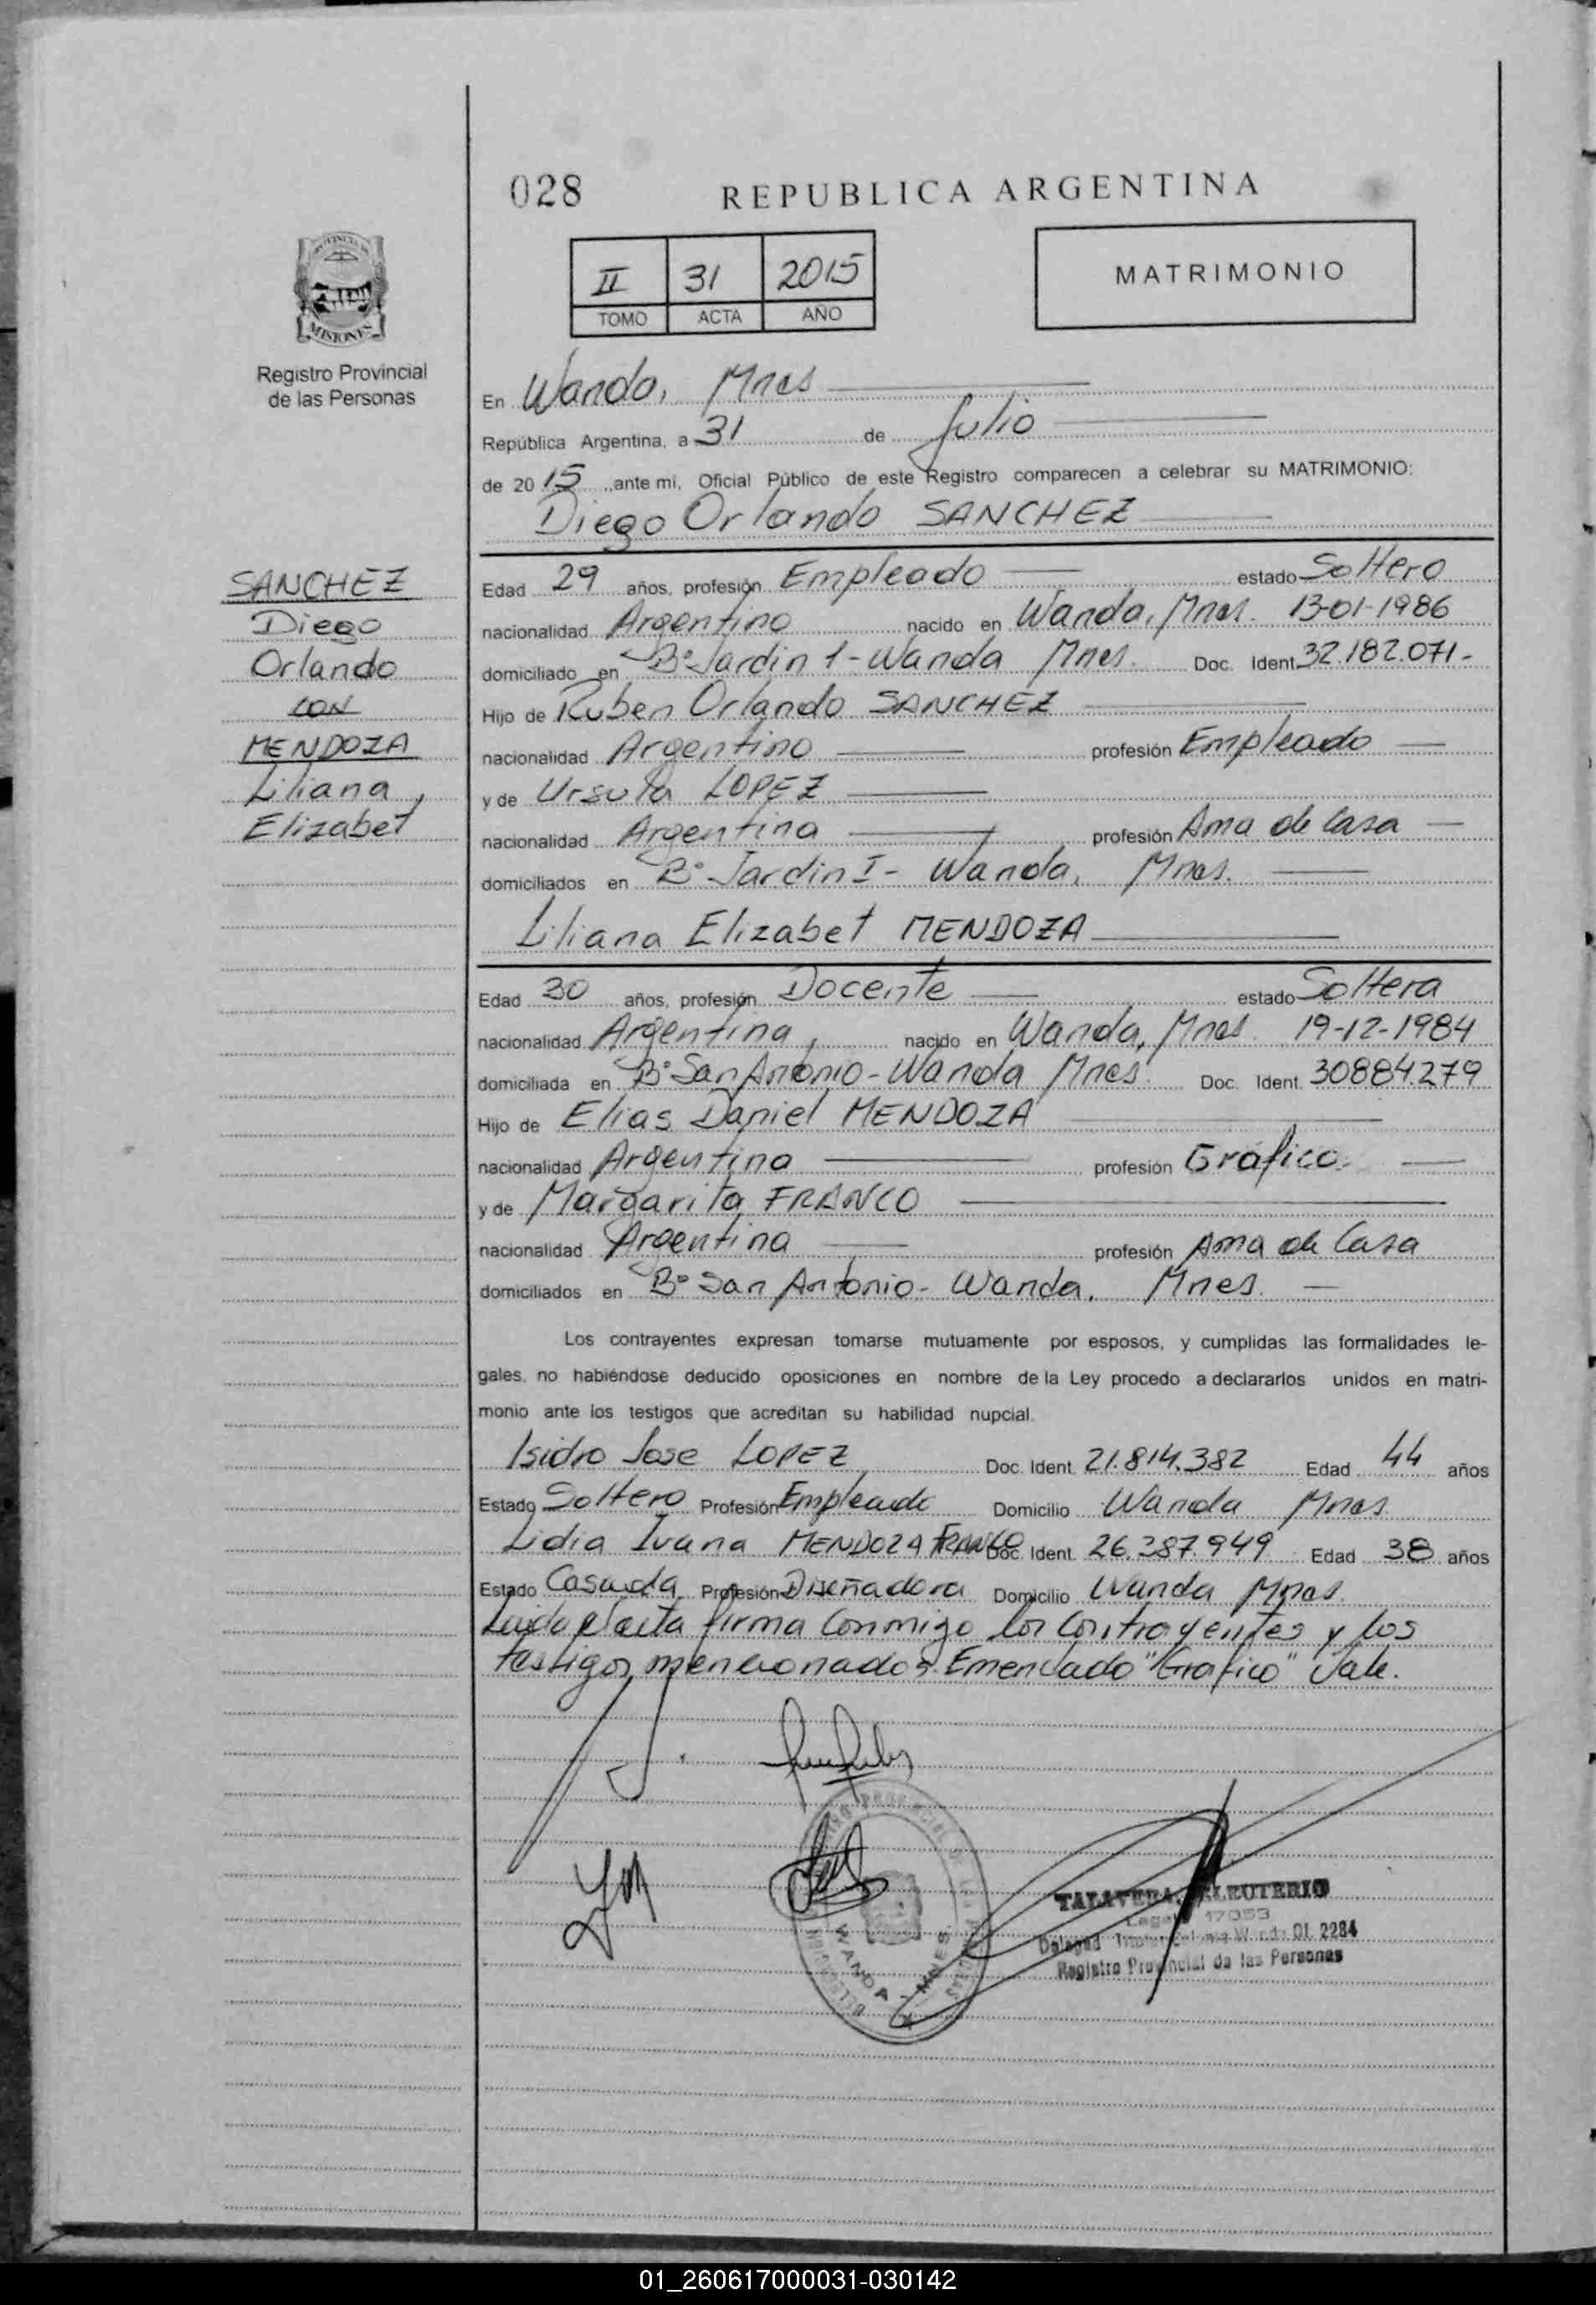 028
REPUBLICA ARGENTINA
II 31 2015
TOMO ACTA AÑO
MATRIMONIO
PROVINCIA DE
MISIONES
Registro Provincial
de las Personas
En Wanda, Mnes
República Argentina, a 31 de Julio
de 20 15 ante mi, Oficial Público de este Registro comparecen a celebrar su MATRIMONIO:
Diego Orlando SANCHEZ
SANCHEZ
Diego
Orlando
con
MENDOZA
Liliana
Elizabet
Edad 29 años, profesión Empleado estado Soltero
nacionalidad Argentino nacido en Wanda, Mnes. 13-01-1986
domiciliado en B° Jardin 1 - Wanda Mnes. Doc. Ident. 32.182.071-
Hijo de Ruben Orlando SANCHEZ
nacionalidad Argentino profesión Empleado
y de Ursula LOPEZ
nacionalidad Argentina profesión Ama de Casa
domiciliados en B° Jardin I - Wanda, Mnes.
Liliana Elizabet MENDOZA
Edad 30 años, profesión Docente estado Soltera
nacionalidad Argentina, nacido en Wanda, Mnes. 19-12-1984
domiciliada en B° San Antonio - Wanda Mnes. Doc. Ident. 30884.279
Hijo de Elias Daniel MENDOZA
nacionalidad Argentino profesión Gráfico.
y de Margarita FRANCO
nacionalidad Argentina profesión Ama de Casa
domiciliados en B° San Antonio - Wanda, Mnes.
Los contrayentes expresan tomarse mutuamente por esposos, y cumplidas las formalidades le-
gales, no habiéndose deducido oposiciones en nombre de la Ley procedo a declararlos unidos en matri-
monio ante los testigos que acreditan su habilidad nupcial.
Isidro Jose LOPEZ Doc. Ident. 21.814.382 Edad 44 años
Estado Soltero Profesión Empleado Domicilio Wanda Mnes.
Lidia Ivana MENDOZA FRANCO Doc. Ident. 26.387.949 Edad 38 años
Estado Casada Profesión Diseñadora Domicilio Wanda Mnes.
Leida el acta firma conmigo los contrayentes y los
testigos mencionados. Emendado "Grafico" Vale.
WANDA - MNES.
TALAVERA, ELEUTERIO
17053
Wanda Dl. 2284
Registro Provincial de las Personas
01_260617000031-030142